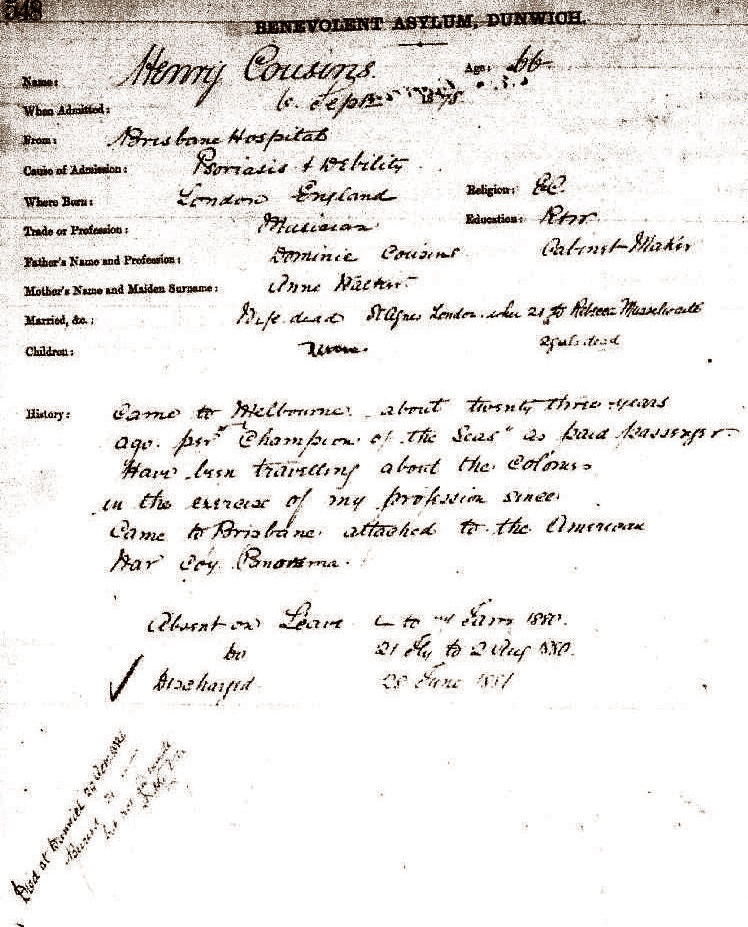 548
BENEVOLENT ASYLUM, DUNWICH.
Name: Henry Cousins. Age: 66
When Admitted: 6 Septr 1875
From: Brisbane Hospital
Cause of Admission: Psoriasis & Debility
Where Born: London England Religion:
Trade or Profession: Musician Education: R & W
Father's Name and Profession: Dominic Cousins Cabinet Maker
Mother's Name and Maiden Surname: Anne
Married, &c.: Wife dead St Agnes London when 21 to Rebecca
Children: None. 2 girls dead
History: Came to Melbourne about twenty three years
ago. per "Champion of the Seas" as paid passenger
Have been travelling about the Colonies
in the exercise of my profession since
Came to Brisbane attached to the American
War Coy
Absent on Leave to 1880.
Do 21 Jly to 2 Aug 1880.
✓ Discharged 28 June 1881
Died at Dunwich
Buried